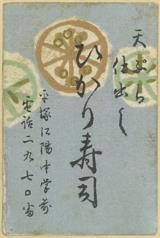 天ぷら
仕出し
ひかり寿司
平塚江陽中学前
電話二九七〇番